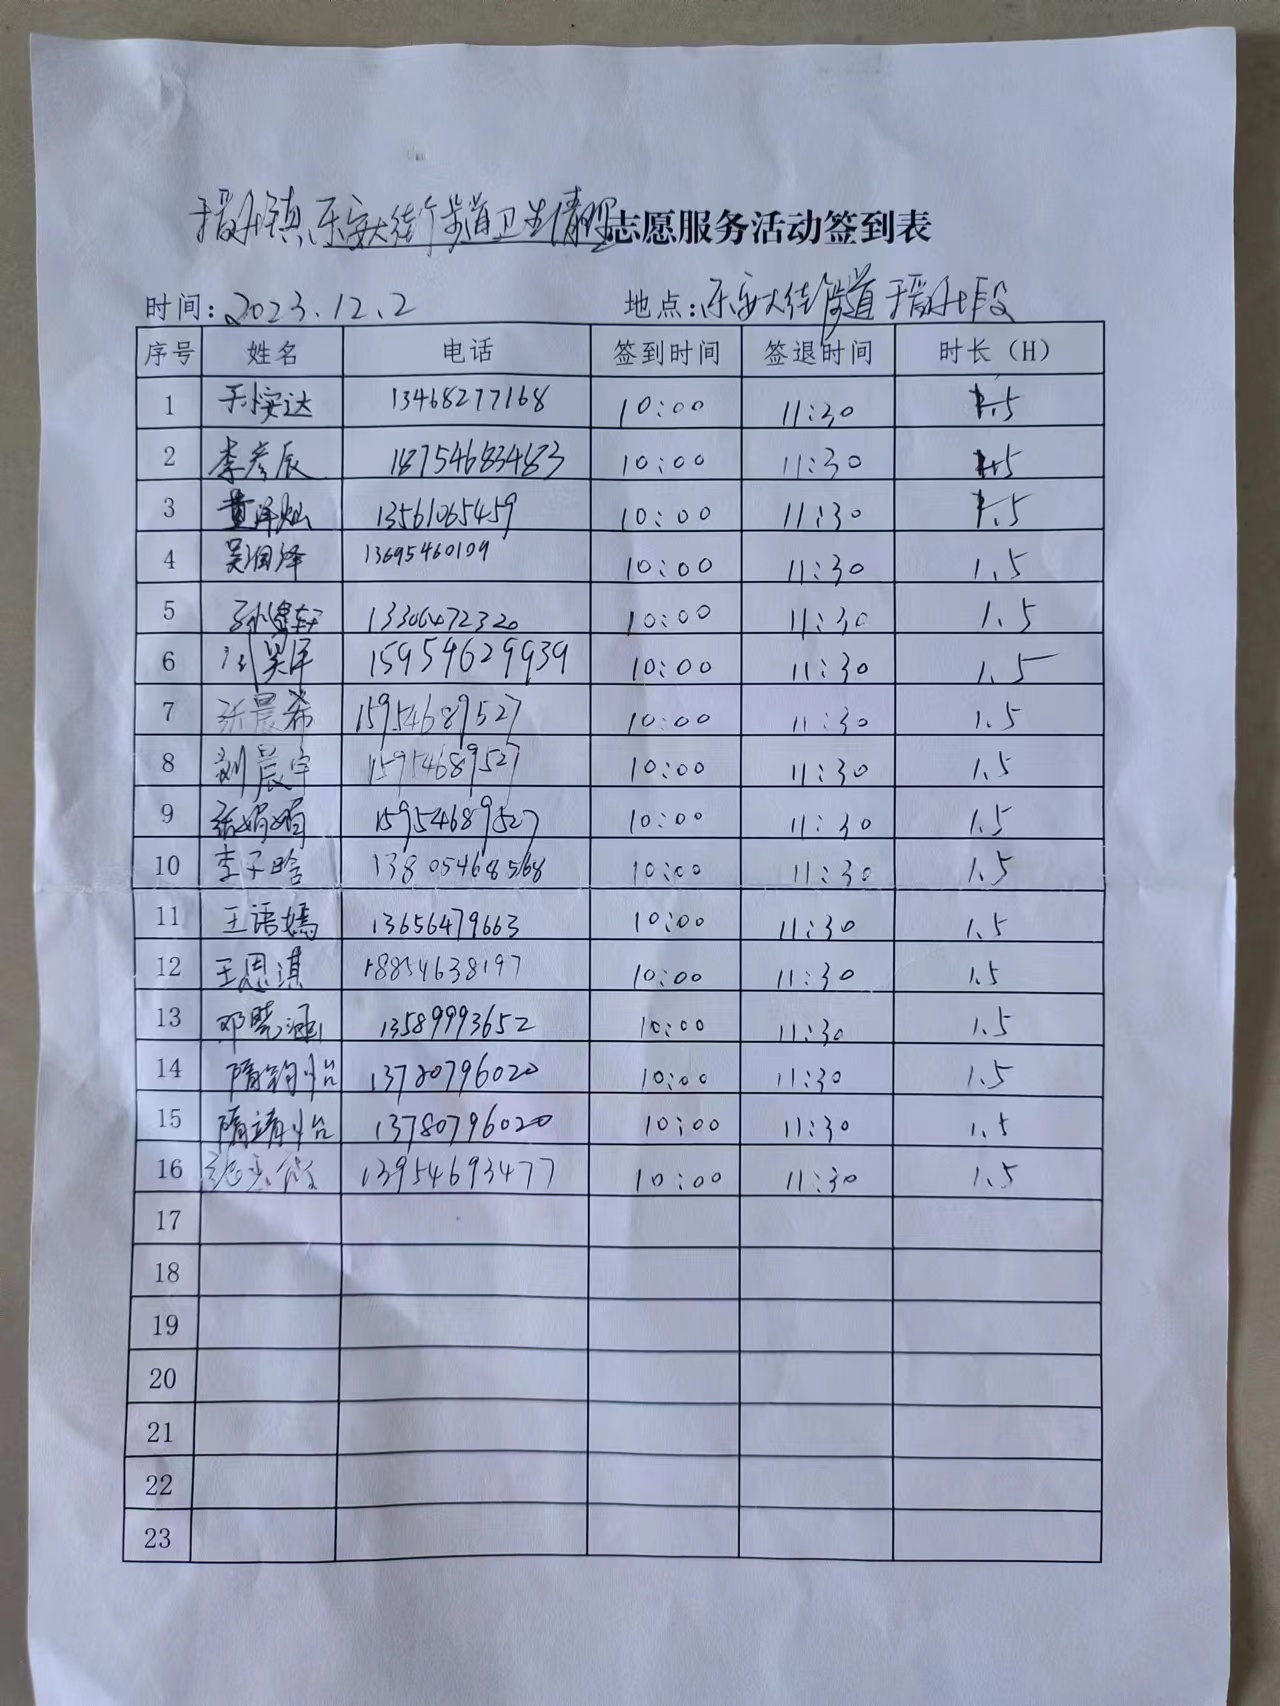 乐安大街街道卫生清理志愿服务活动签到表
时间:2023.12.2 地点:乐安大街街道 段
序号 姓名 电话 签到时间 签退时间 时长（H）
1 13468277168 10:00 11:30 1.5
2 李彦辰 187546834483 10:00 11:30 1.5
3 13561065459 10:00 11:30 1.5
4 吴润泽 13695460109 10:00 11:30 1.5
5 13306472320 10:00 11:30 1.5
6 15954629939 10:00 11:30 1.5
7 张晨希 15954689527 10:00 11:30 1.5
8 刘晨宇 15954689527 10:00 11:30 1.5
9 张娟娟 15954689527 10:00 11:30 1.5
10 李子晗 13805468568 10:00 11:30 1.5
11 王语嫣 13656479663 10:00 11:30 1.5
12 王恩淇 18854638197 10:00 11:30 1.5
13 邓晓涵 13589993652 10:00 11:30 1.5
14 隋钧怡 13780796020 10:00 11:30 1.5
15 隋靖怡 13780796020 10:00 11:30 1.5
16 13954693477 10:00 11:30 1.5
17
18
19
20
21
22
23